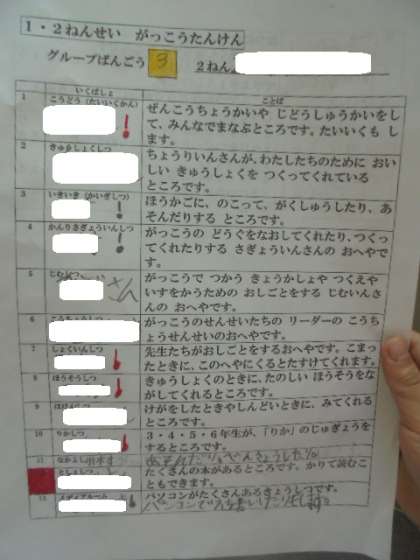 1・2ねんせい がっこうたんけん
グループばんごう 3 2ねん
いくばしょ ことば
1 こうどう(たいいくかん)
ぜんこうちょうかいや じどうしゅうかいをし
て、みんなでまなぶところです。たいいくも し
ます。
2 きゅうしょくしつ
ちょうりいんさんが、わたしたちのために おい
しい きゅうしょくを つくってくれている
ところです。
3 いきいき(かいぎしつ)
ほうかごに、のこって、がくしゅうしたり、あ
そんだりする ところです。
4 かんりさぎょういんしつ
がっこうの どうぐをなおしてくれたり、つくっ
てくれたりする さぎょういんさんの おへやで
す。
5 じむしつ
がっこうで つかう きょうかしょや つくえや
いすをかうための おしごとをする じむいんさ
んの おへやです。
6 こうちょうしつ
がっこうのせんせいたちの リーダーの こうち
ょうせんせいのおへやです。
7 しょくいんしつ
先生たちがおしごとをするおへやです。こまっ
たときに、このへやにくるとたすけてくれます。
8 ほうそうしつ
きゅうしょくのときに、たのしい ほうそうをな
がしてくれるところです。
9
けがをしたときやしんどいときに、みてくれる
ところです。
10 りかしつ
3・4・5・6年生が、「りか」のじゅぎょうを
するところです。
11
たくさんの本があるところです。かりて読むこ
ともできます。
パソコンがたくさんあるきょうしつです。